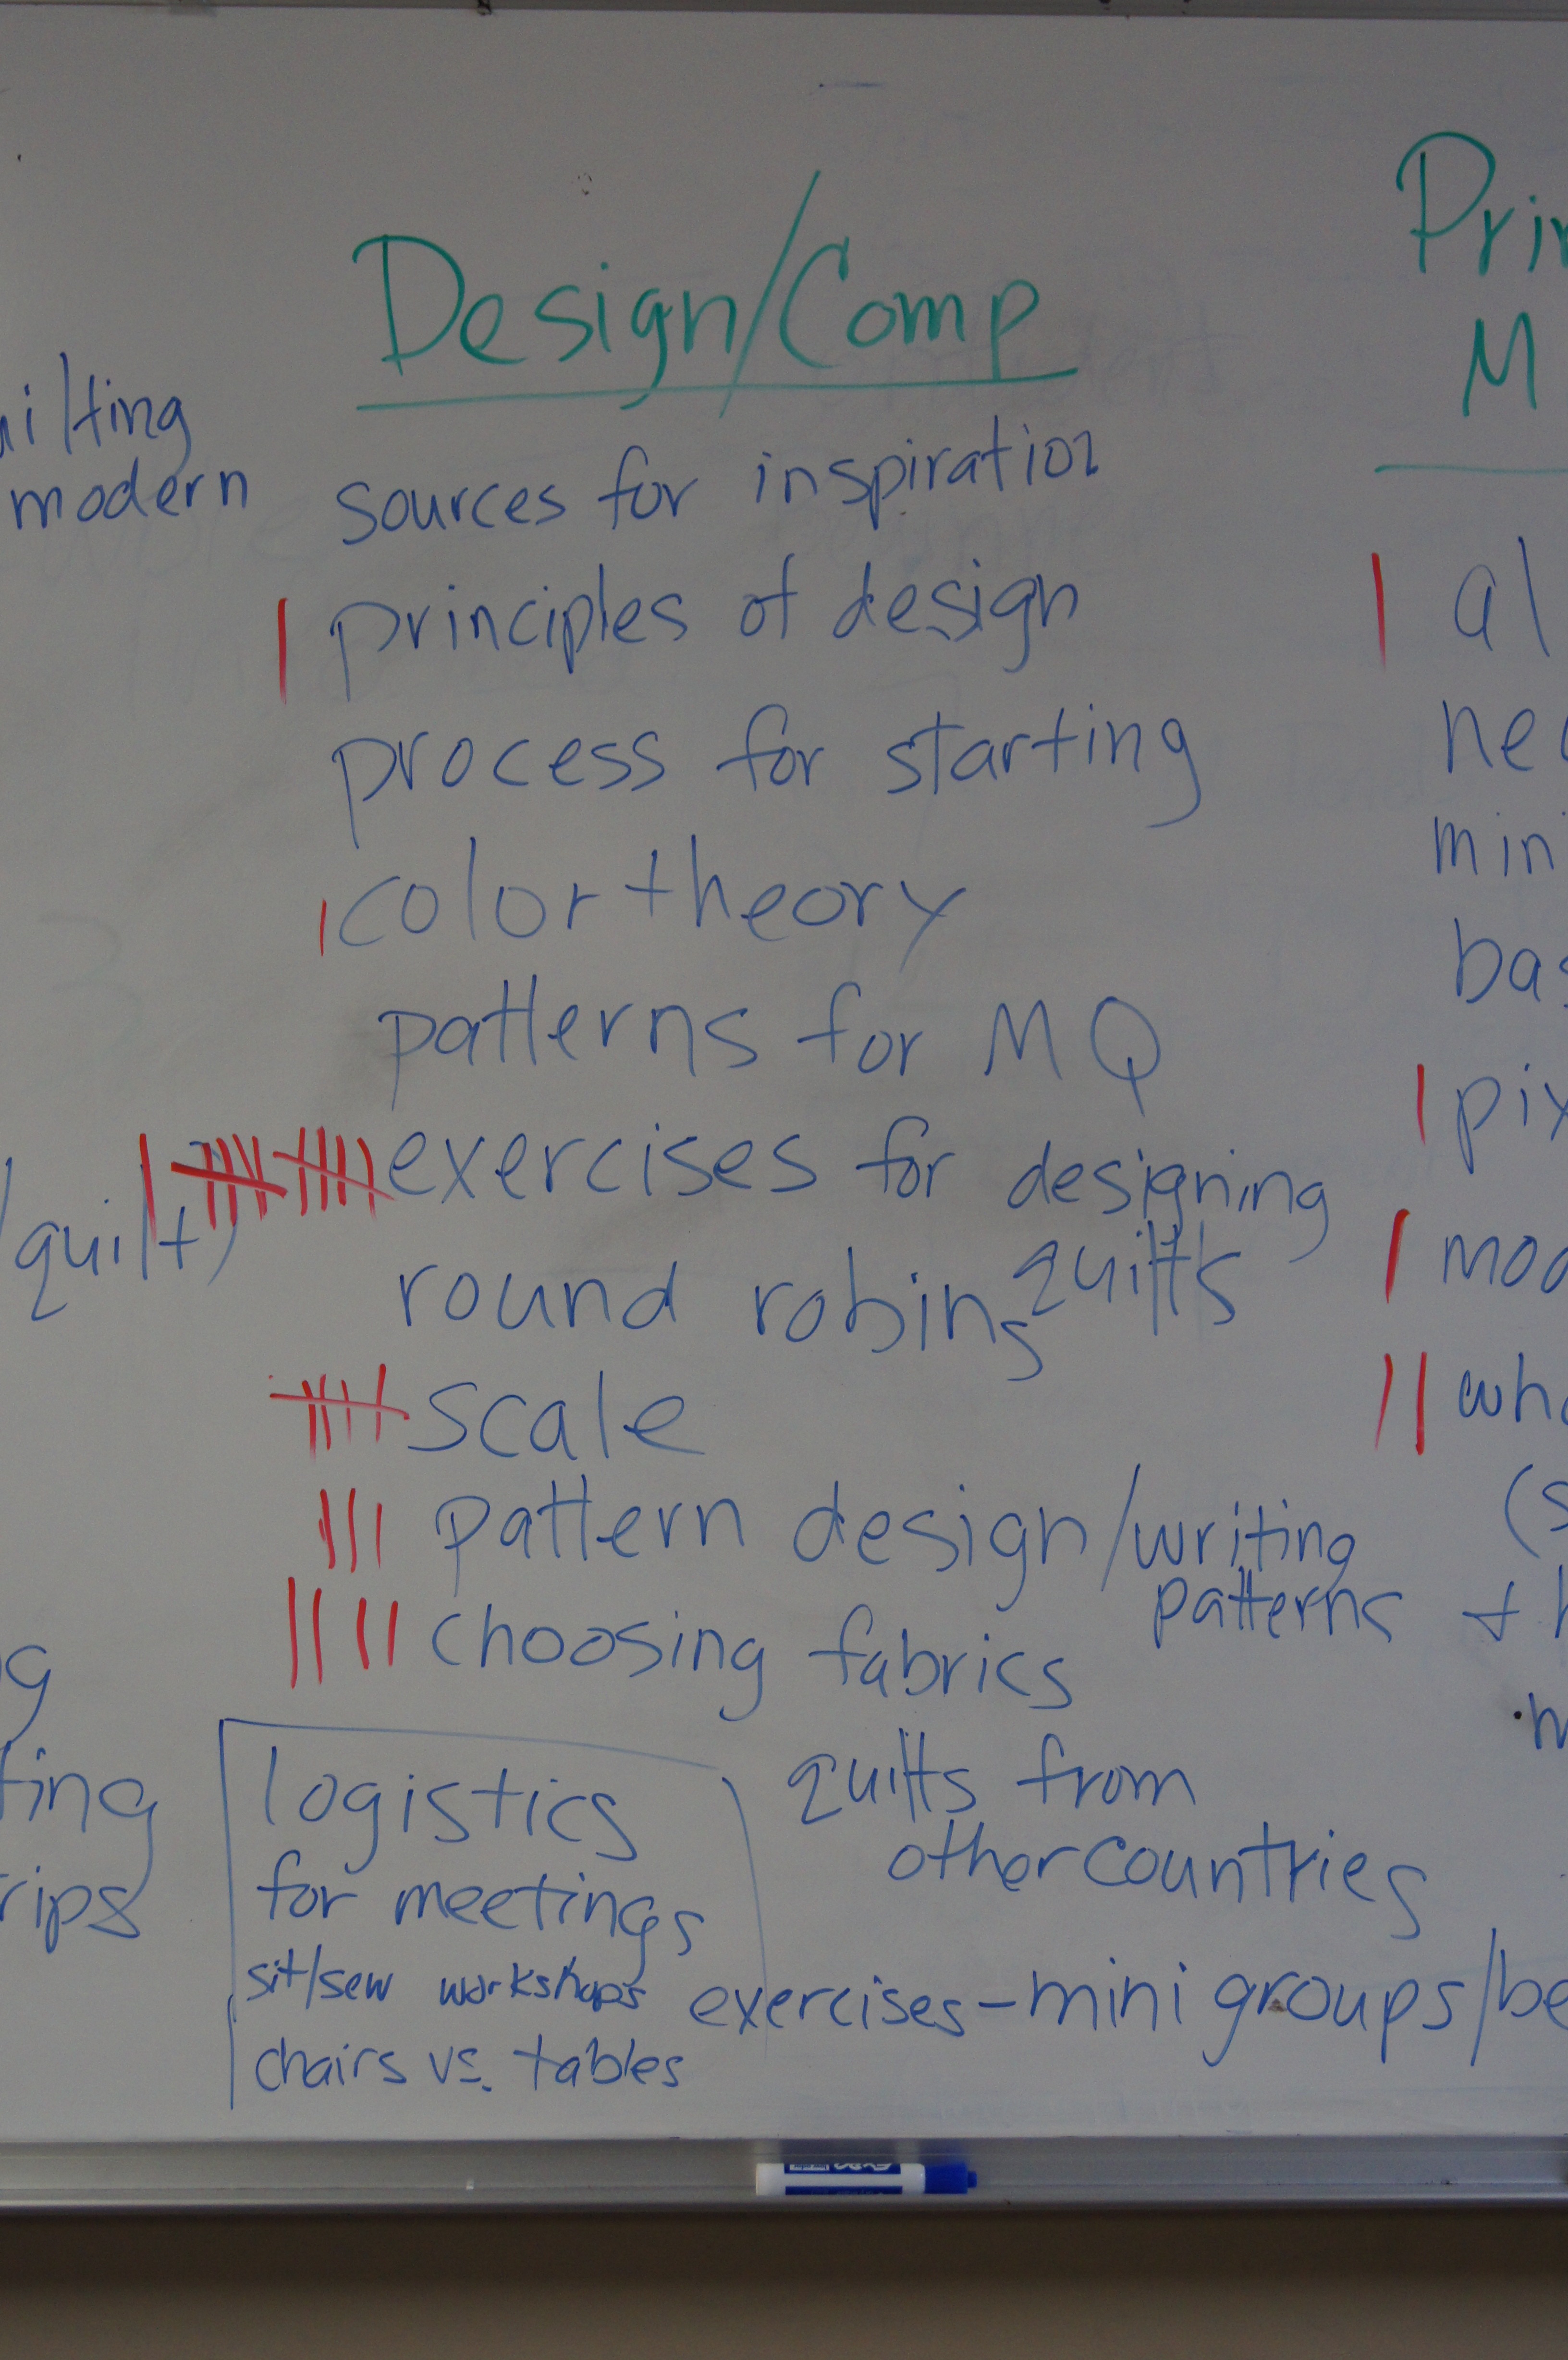 Design/Comp
sources for inspiration
principles of design
process for starting
color theory
patterns for MQ
exercises for designing
quilts
round robins
scale
pattern design/writing
patterns
choosing fabrics
quilts from
other countries
exercises - mini groups/be
logistics
for meetings
sit/sew workshops
chairs vs. tables
uilting
modern
quilt)
g
ting
rips
Prin
M
al
min
bas
pix
mod
who
(s
+ h
EXPO